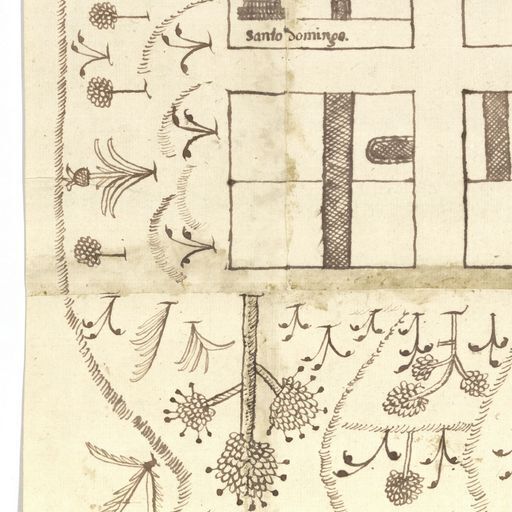 Santo domingo.